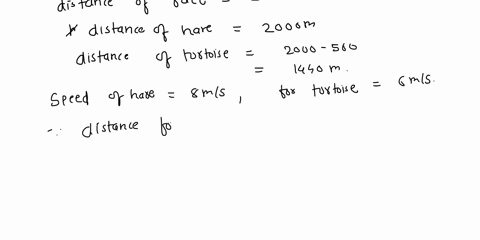 distance of
* distance of hare = 2000m
distance of tortoise = 2000-560
= 1440 m.
Speed of hare = 8m/s, for tortoise = 6m/s.
∵ distance fo